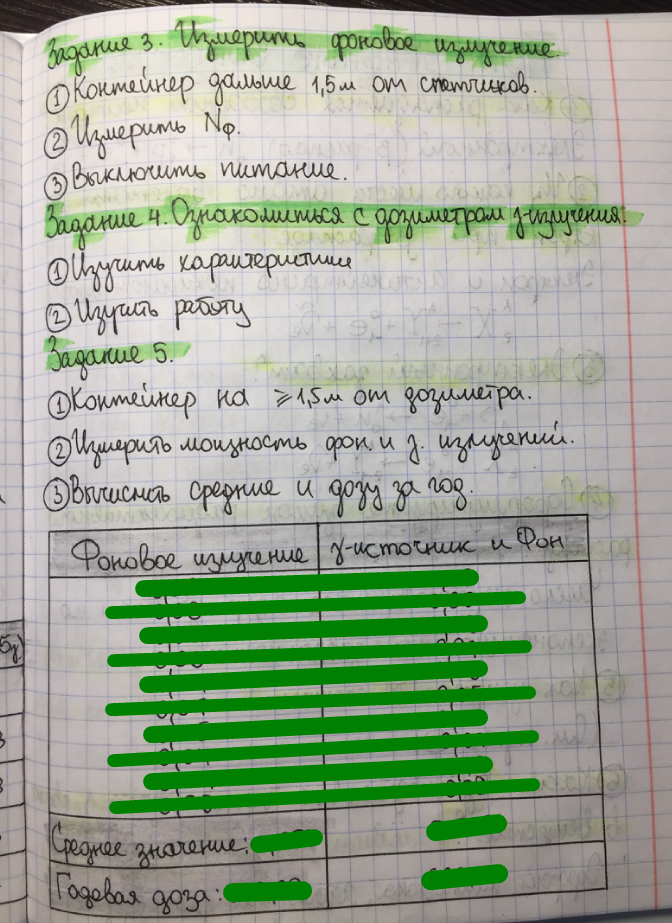 Задание 3. Измерить фоновое излучение.
① Контейнер дальше 1,5м от счетчиков.
② Измерить Nф.
③ Выключить питание.
Задание 4. Ознакомиться с дозиметрам γ-излучения.
① Изучить характеристики
② Изучить работу
Задание 5.
① Контейнер на ⩾1,5м от дозиметра.
② Измерить мощность фон. и γ. излучений.
③ Вычислить средние и дозу за год.
Фоновое излучение γ-источник и Фон
Среднее значение:
Годовая доза: